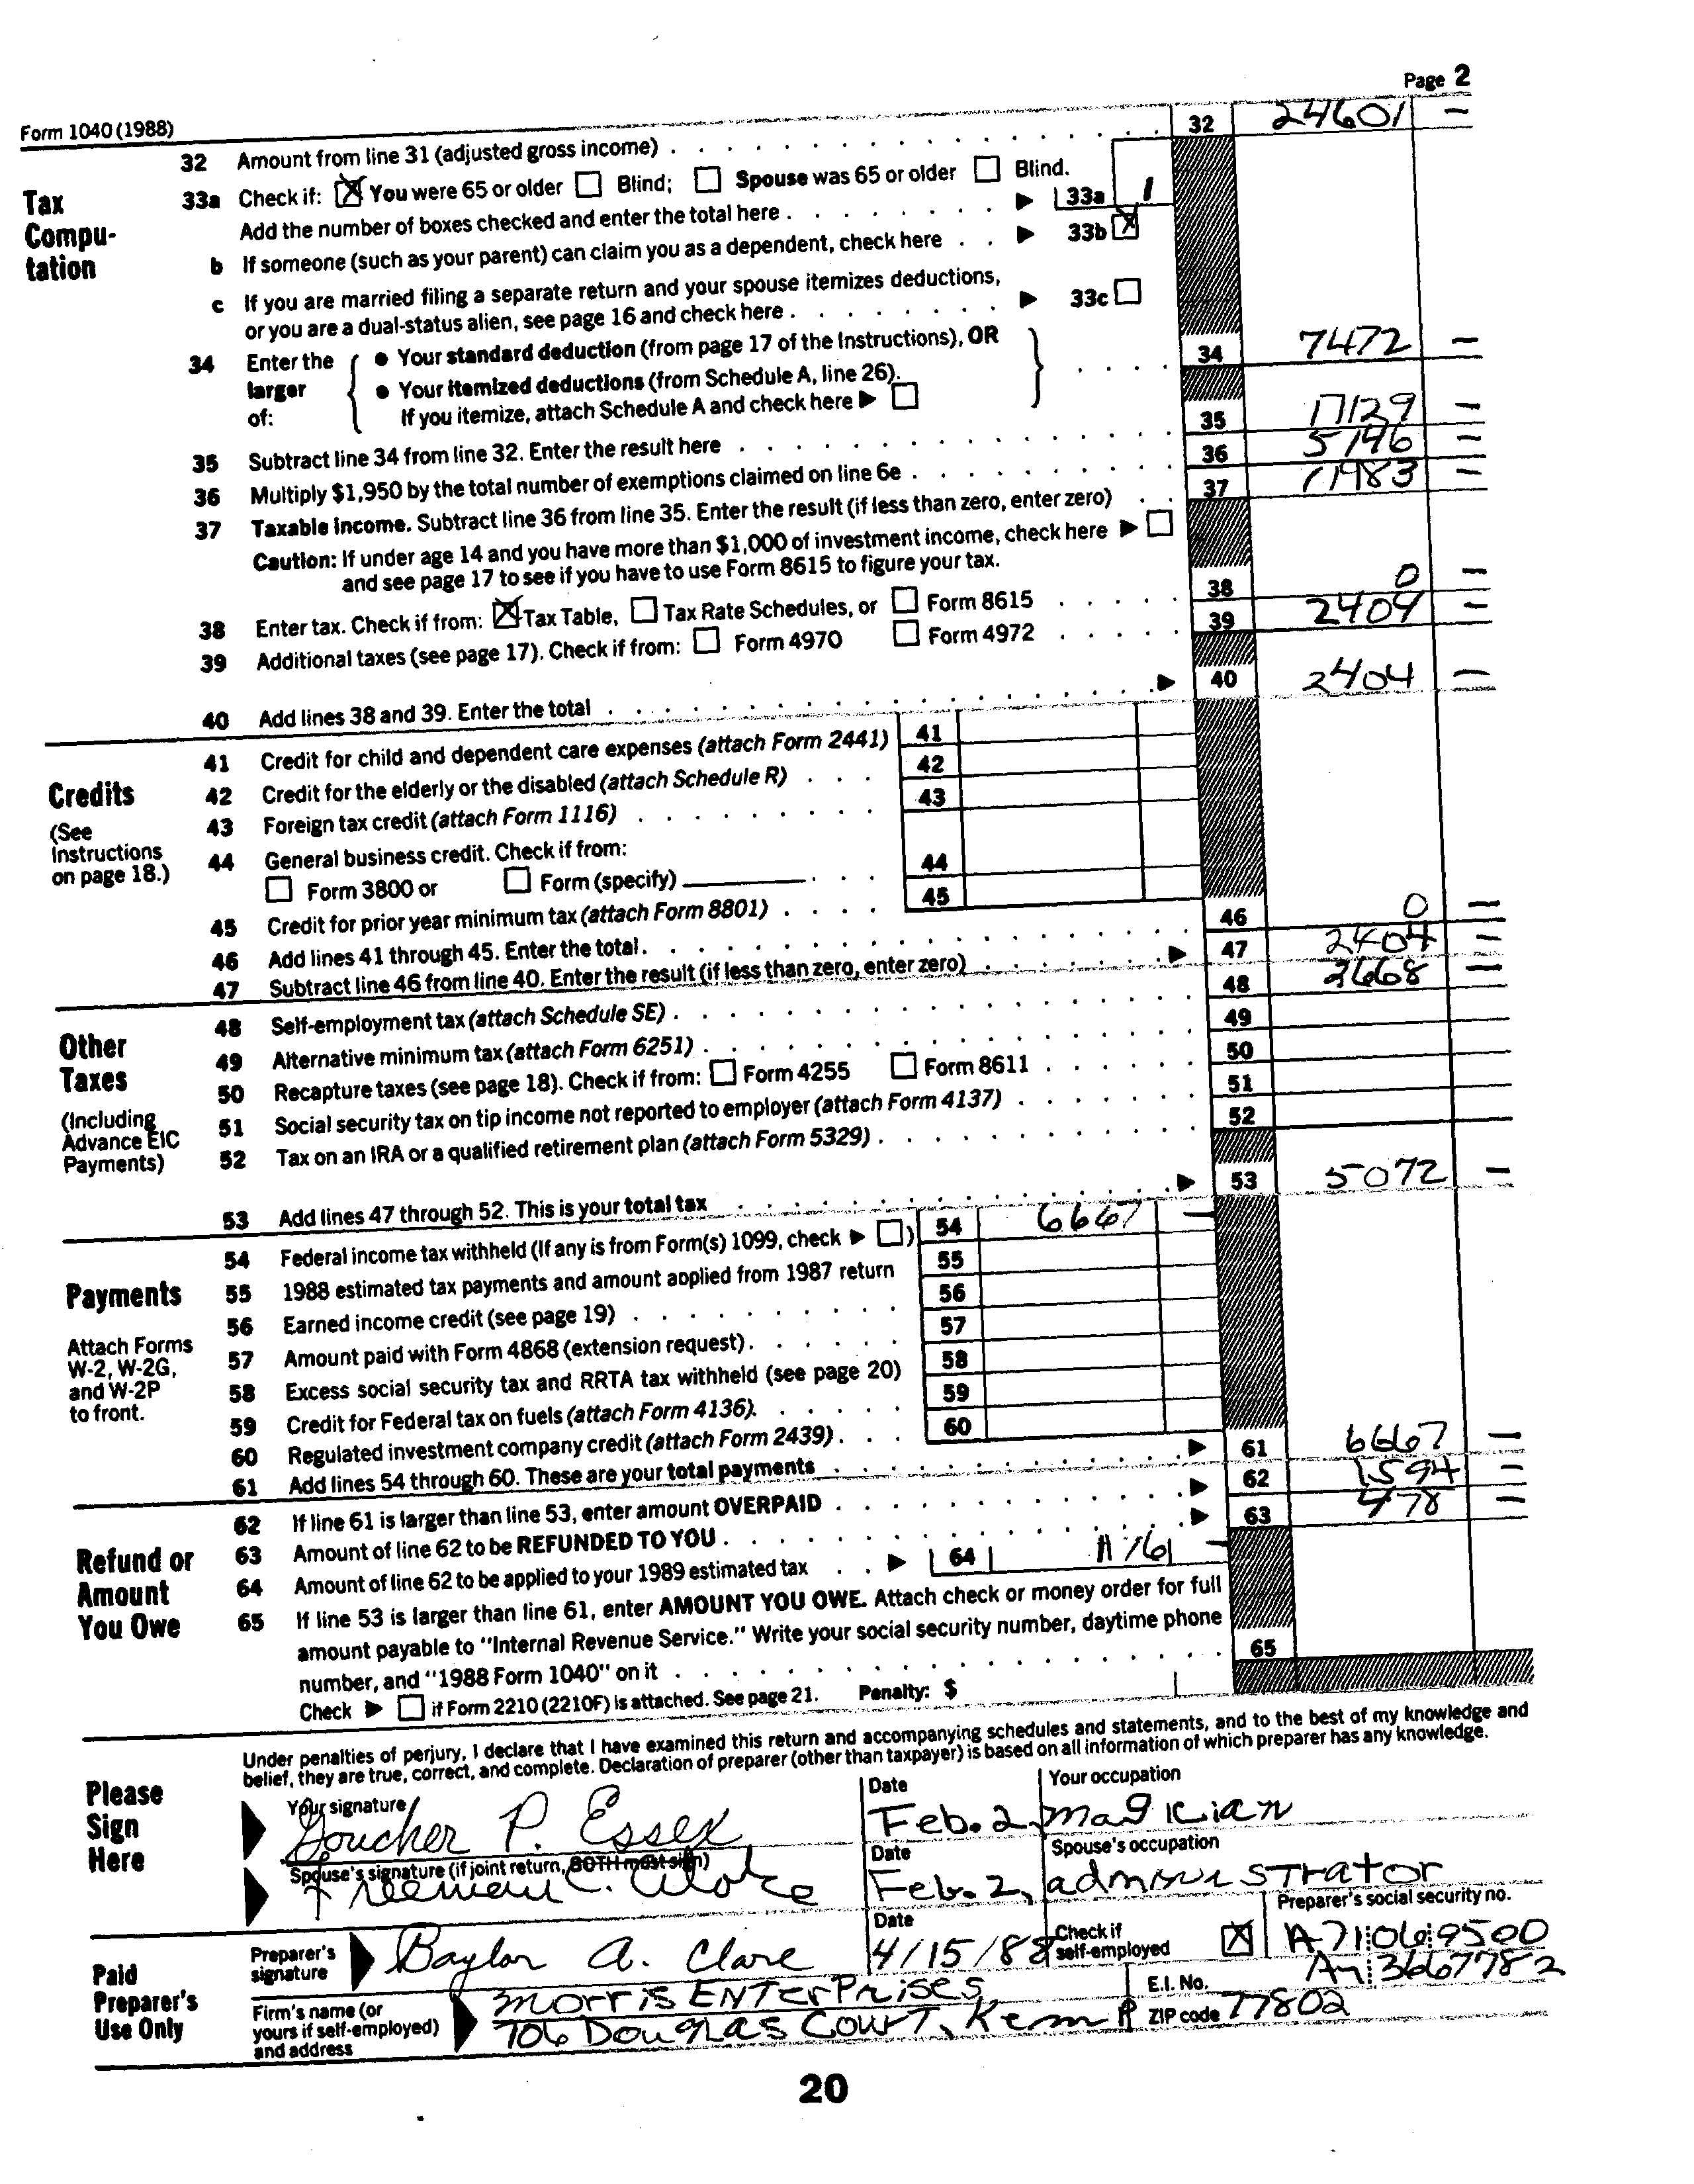 Page 2
Form 1040 (1988)
32 Amount from line 31 (adjusted gross income) 32 24601 —
Tax Computation
33a Check if: ☒ You were 65 or older ☐ Blind; ☐ Spouse was 65 or older ☐ Blind.
Add the number of boxes checked and enter the total here ▶ 33a 1
b If someone (such as your parent) can claim you as a dependent, check here ▶ 33b ☒
c If you are married filing a separate return and your spouse itemizes deductions,
or you are a dual-status alien, see page 16 and check here ▶ 33c ☐
34 Enter the larger of: { • Your standard deduction (from page 17 of the Instructions), OR
• Your itemized deductions (from Schedule A, line 26).
If you itemize, attach Schedule A and check here ▶ ☐ } 34 7472 —
35 Subtract line 34 from line 32. Enter the result here 35 17129 —
36 Multiply $1,950 by the total number of exemptions claimed on line 6e 36 5146 —
37 Taxable income. Subtract line 36 from line 35. Enter the result (if less than zero, enter zero) 37 11983 —
Caution: If under age 14 and you have more than $1,000 of investment income, check here ▶ ☐
and see page 17 to see if you have to use Form 8615 to figure your tax.
38 Enter tax. Check if from: ☒ Tax Table, ☐ Tax Rate Schedules, or ☐ Form 8615 38 0 —
39 Additional taxes (see page 17). Check if from: ☐ Form 4970 ☐ Form 4972 39 2404 —
40 Add lines 38 and 39. Enter the total ▶ 40 2404 —
Credits
(See Instructions on page 18.)
41 Credit for child and dependent care expenses (attach Form 2441) 41
42 Credit for the elderly or the disabled (attach Schedule R) 42
43 Foreign tax credit (attach Form 1116) 43
44 General business credit. Check if from:
☐ Form 3800 or ☐ Form (specify) 44
45 Credit for prior year minimum tax (attach Form 8801) 45
46 Add lines 41 through 45. Enter the total 46 0 —
47 Subtract line 46 from line 40. Enter the result (if less than zero, enter zero) ▶ 47 2404 —
Other Taxes
(Including Advance EIC Payments)
48 Self-employment tax (attach Schedule SE) 48 2668 —
49 Alternative minimum tax (attach Form 6251) 49
50 Recapture taxes (see page 18). Check if from: ☐ Form 4255 ☐ Form 8611 50
51 Social security tax on tip income not reported to employer (attach Form 4137) 51
52 Tax on an IRA or a qualified retirement plan (attach Form 5329) 52
53 Add lines 47 through 52. This is your total tax ▶ 53 5072 —
Payments
Attach Forms W-2, W-2G, and W-2P to front.
54 Federal income tax withheld (If any is from Form(s) 1099, check ▶ ☐) 54 6667 —
55 1988 estimated tax payments and amount applied from 1987 return 55
56 Earned income credit (see page 19) 56
57 Amount paid with Form 4868 (extension request) 57
58 Excess social security tax and RRTA tax withheld (see page 20) 58
59 Credit for Federal tax on fuels (attach Form 4136) 59
60 Regulated investment company credit (attach Form 2439) 60
61 Add lines 54 through 60. These are your total payments ▶ 61 6667 —
Refund or Amount You Owe
62 If line 61 is larger than line 53, enter amount OVERPAID ▶ 62 1594 —
63 Amount of line 62 to be REFUNDED TO YOU ▶ 63 478 —
64 Amount of line 62 to be applied to your 1989 estimated tax ▶ 64
65 If line 53 is larger than line 61, enter AMOUNT YOU OWE. Attach check or money order for full
amount payable to "Internal Revenue Service." Write your social security number, daytime phone
number, and "1988 Form 1040" on it 65
Check ▶ ☐ if Form 2210 (2210F) is attached. See page 21. Penalty: $
Please Sign Here
Under penalties of perjury, I declare that I have examined this return and accompanying schedules and statements, and to the best of my knowledge and
belief, they are true, correct, and complete. Declaration of preparer (other than taxpayer) is based on all information of which preparer has any knowledge.
Your signature Goucher P. Essex Date Feb. 2, Your occupation magician
Spouse's signature (if joint return, BOTH must sign) Freeman C. Date Feb. 2, Spouse's occupation administrator
Paid Preparer's Use Only
Preparer's signature Baylor A. Clare Date 4/15/88 Check if self-employed ☒ Preparer's social security no. A71 06 9500
Firm's name (or yours if self-employed) and address Morris Enterprises, E.I. No. 3667782
706 Douglas Court, Kem ZIP code 77802
20